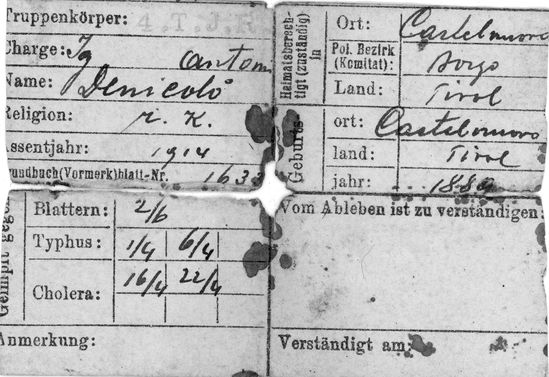 Truppenkörper:
Charge: Jg
Name: Denicoló Antoni
Religion: r. K.
Assentjahr: 1914
Grundbuch(Vormerk)blatt-Nr. 1633
Heimatsberech-
tigt (zuständig)
in
Ort: Castelnuovo
Pol. Bezirk
(Komitat): Borgo
Land: Tirol
Geburts-
ort: Castelnuovo
land: Tirol
jahr: 1889
Geimpft gegen
Blattern: 2/6
Typhus: 1/4 6/4
Cholera: 16/4 22/4
Anmerkung:
Vom Ableben ist zu verständigen:
Verständigt am: